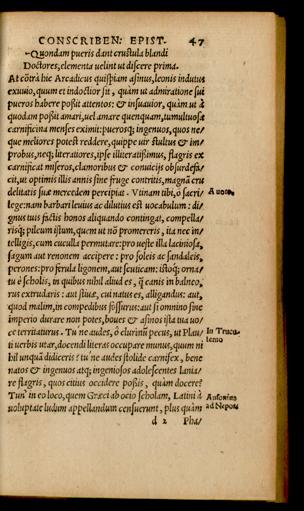 CONSCRIBEN: EPIST. 47
Quondam pueris dant crustula blandi
Doctores, elementa velint ut discere prima.
At cōtrà hic Arcadicus quispiam asinus, leonis indutus
exuuio, quum et indoctior sit, quàm ut admiratione sui
pueros habere possit attentos: & insuauior, quàm ut à
quodam possit amari, uel amare quenquam, tumultuosa
carnificina menses eximit: puerosq; ingenuos, quos ne/
que meliores potest reddere, quippe uir stultus & im/
probus, neq; literatiores, ipse illiteratissimus, flagris ex
carnificat miseros, clamoribus & conuicijs obsurdefa/
cit, ut optimis illis annis sine fruge contritis, magnā cru
delitatis suæ mercedem percipiat. Vtinam tibi, ô sacri/
lege: nam barbari leuius ac dilutius est uocabulum: di/
gnus tuis factis honos aliquando contingat, compella/
risq; pileum istum, quem ut nō promereris, ita nec in/
telligis, cum cuculla permutare: pro ueste illa laciniosa,
sagum aut renonem accipere: pro soleis ac sandaleis,
perones: pro ferula ligonem, aut scuticam: istoq; orna/
tu è scholis, in quibus nihil aliud es, q̄ canis in balneo,
rus extrudaris: aut stiuæ, cui natus es, alligandus: aut,
quod malim, in compedibus fossurus: aut si omnino sine
imperio durare non potes, boues & asinos ista tua uo/
ce territaturus. Tu ne audes, ô clurinū pecus, ut Plau/
ti uerbis utar, docendi literas occupare munus, quum ni
hil unquā didiceris? tu'ne audes stolide carnifex, bene
natos & ingenuos atq; ingeniosos adolescentes lania/
re flagris, quos citius occidere possis, quàm docere?
Tun' in eo loco, quem Græci ab ocio scholam, Latini à
uoluptate ludum appellandum censuerunt, plus quàm
d 2 Pha/
In Trucu.
lento
Ausonius
ad Nepotē